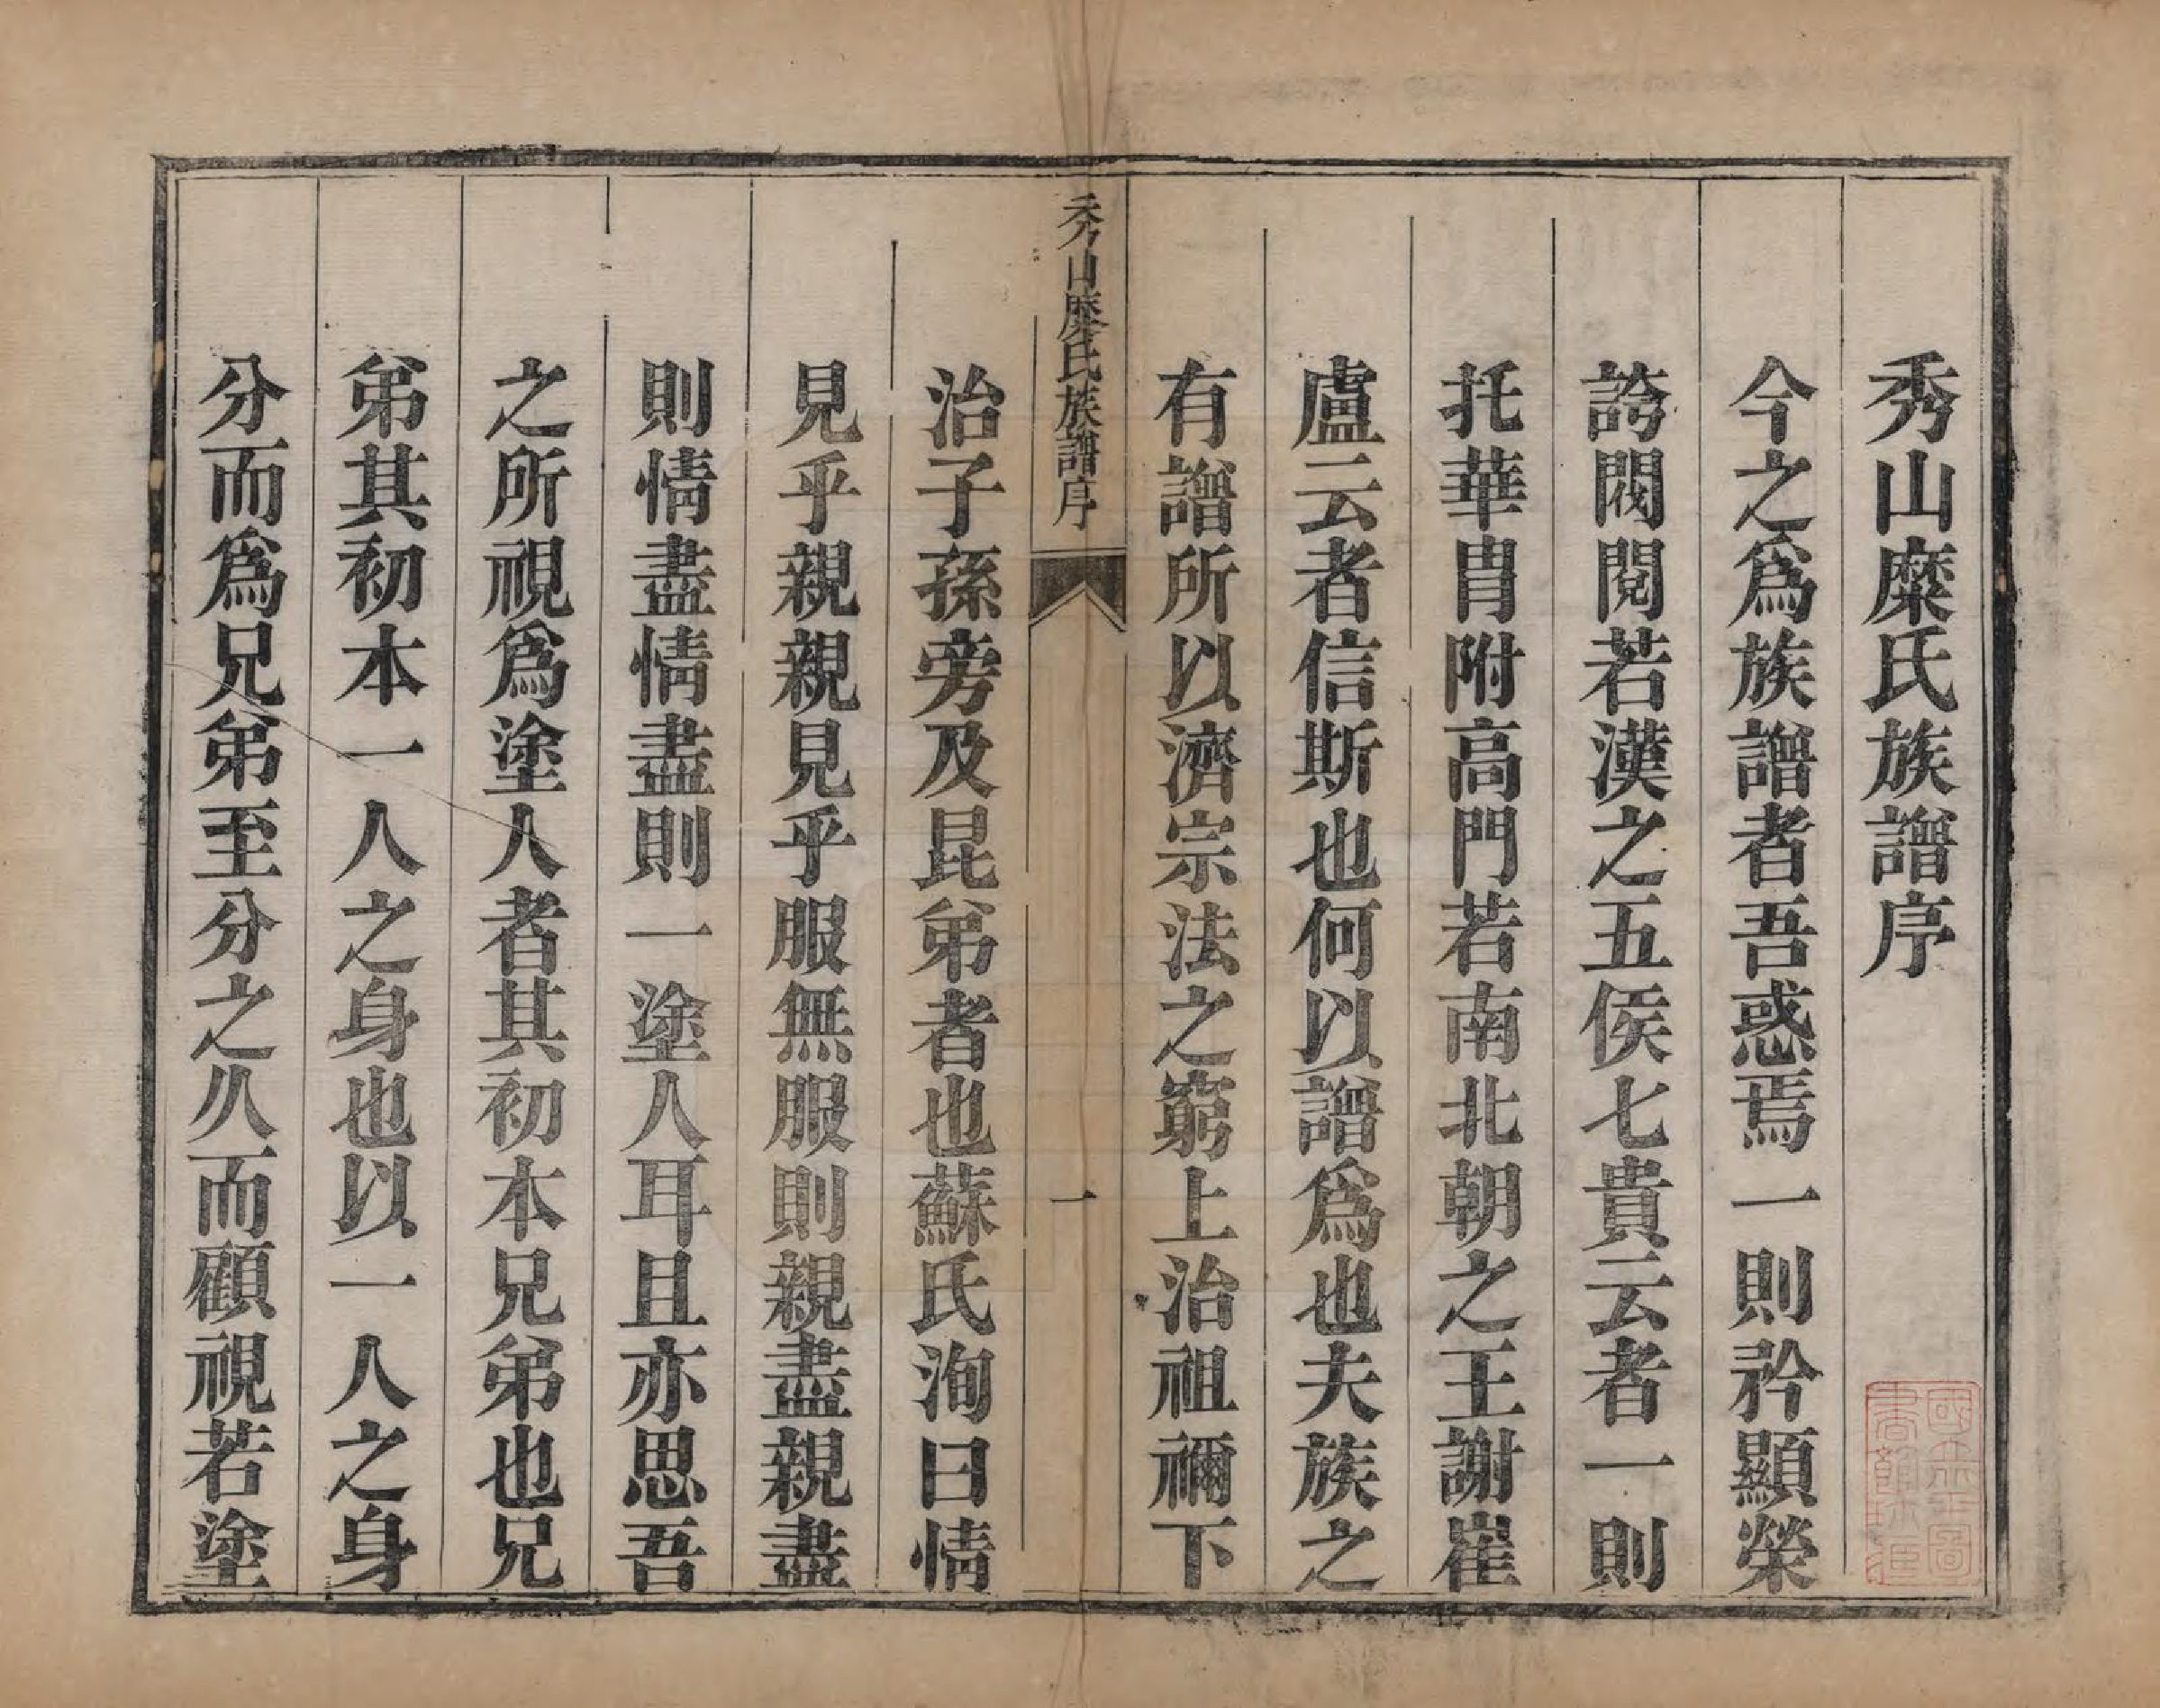 秀山糜氏族譜序
今之爲族譜者吾惑焉一則矜顯榮
誇閥閱若漢之五侯七貴云者一則
托華胄附高門若南北朝之王謝崔
盧云者信斯也何以譜爲也夫族之
有譜所以濟宗法之窮上治祖禰下
秀山糜氏族譜序
一
治子孫旁及昆弟者也蘇氏洵曰情
見乎親親見乎服無服則親盡親盡
則情盡情盡則一塗人耳且亦思吾
之所視爲塗人者其初本兄弟也兄
弟其初本一人之身也以一人之身
分而爲兄弟至分之久而顧視若塗